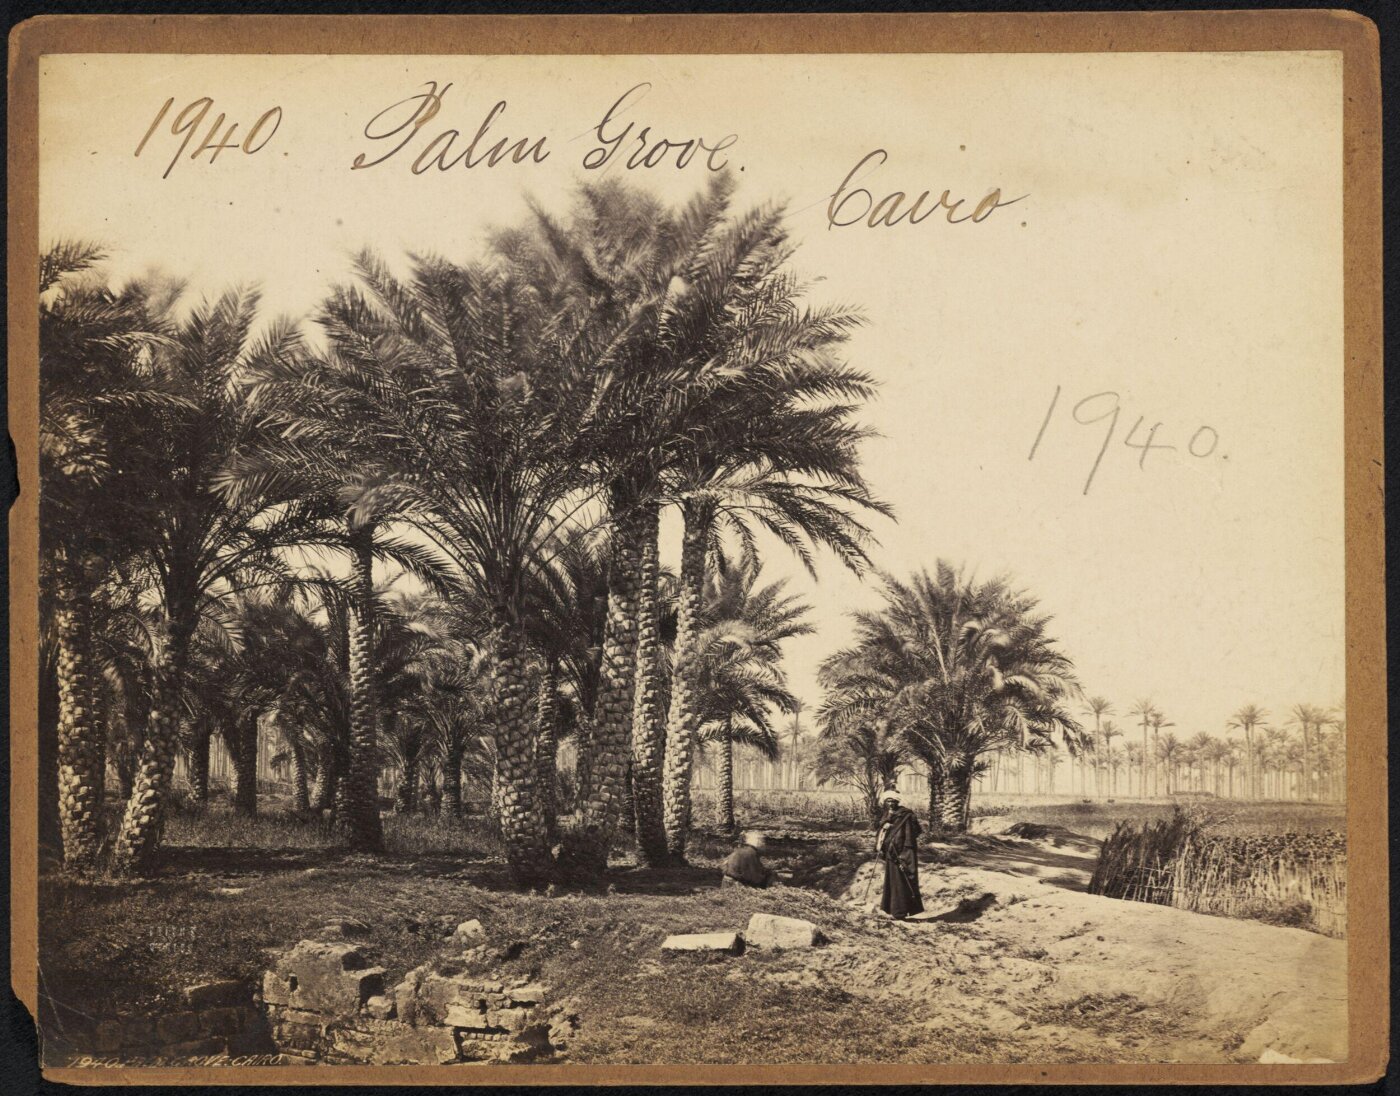 1940. Palm Grove.
Cairo.
1940.
1940. PALM GROVE. CAIRO.